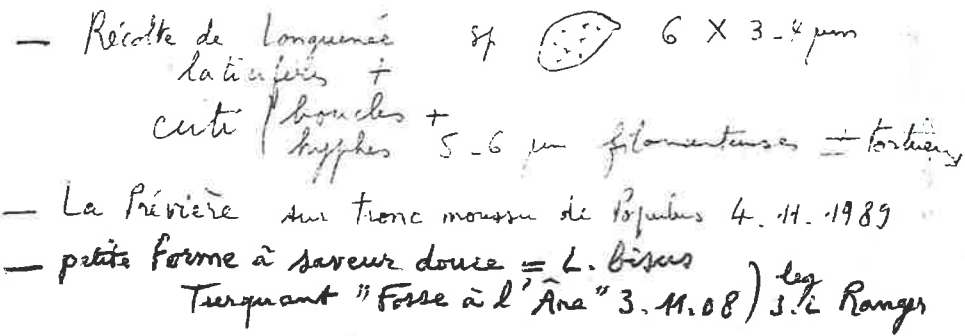 — Récolte de Longuenée sp 6 X 3-4 µm
laticifères +
cuti / boucles +
hyphes 5-6 µm filamenteuses ± tortueuses
— La Prévière sur tronc moussu de Populus 4.11.1989
— petite forme à saveur douce = L. bisus
Turquant "Fosse à l'Âne" 3.11.08) leg J.L Ranger